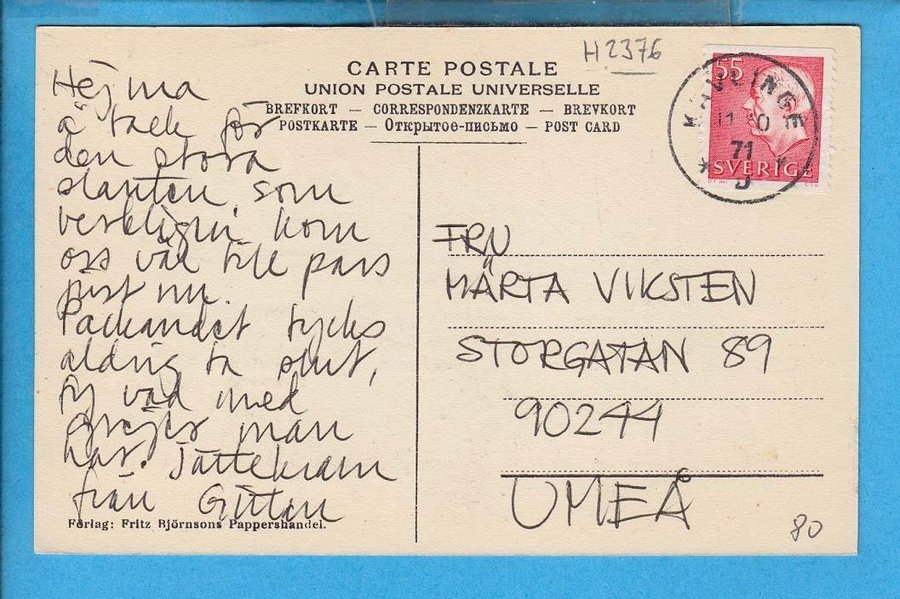 H2376
CARTE POSTALE
UNION POSTALE UNIVERSELLE
BREFKORT — CORRESPONDENZKARTE — BREVKORT
POSTKARTE — Открытое-письмо — POST CARD
55
SVERIGE
KÄVLINGE
71
Hej ma
å tack för
den stora
slanten, som
verkligen kom
oss väl till pass
just nu.
Packandet tycks
aldrig ta slut,
fy vad med
grejer man
har. Jättekram
från Gittan
FRN
MÄRTA VIKSTEN
STORGATAN 89
90244
UMEÅ
Förlag: Fritz Björnsons Pappershandel.
80